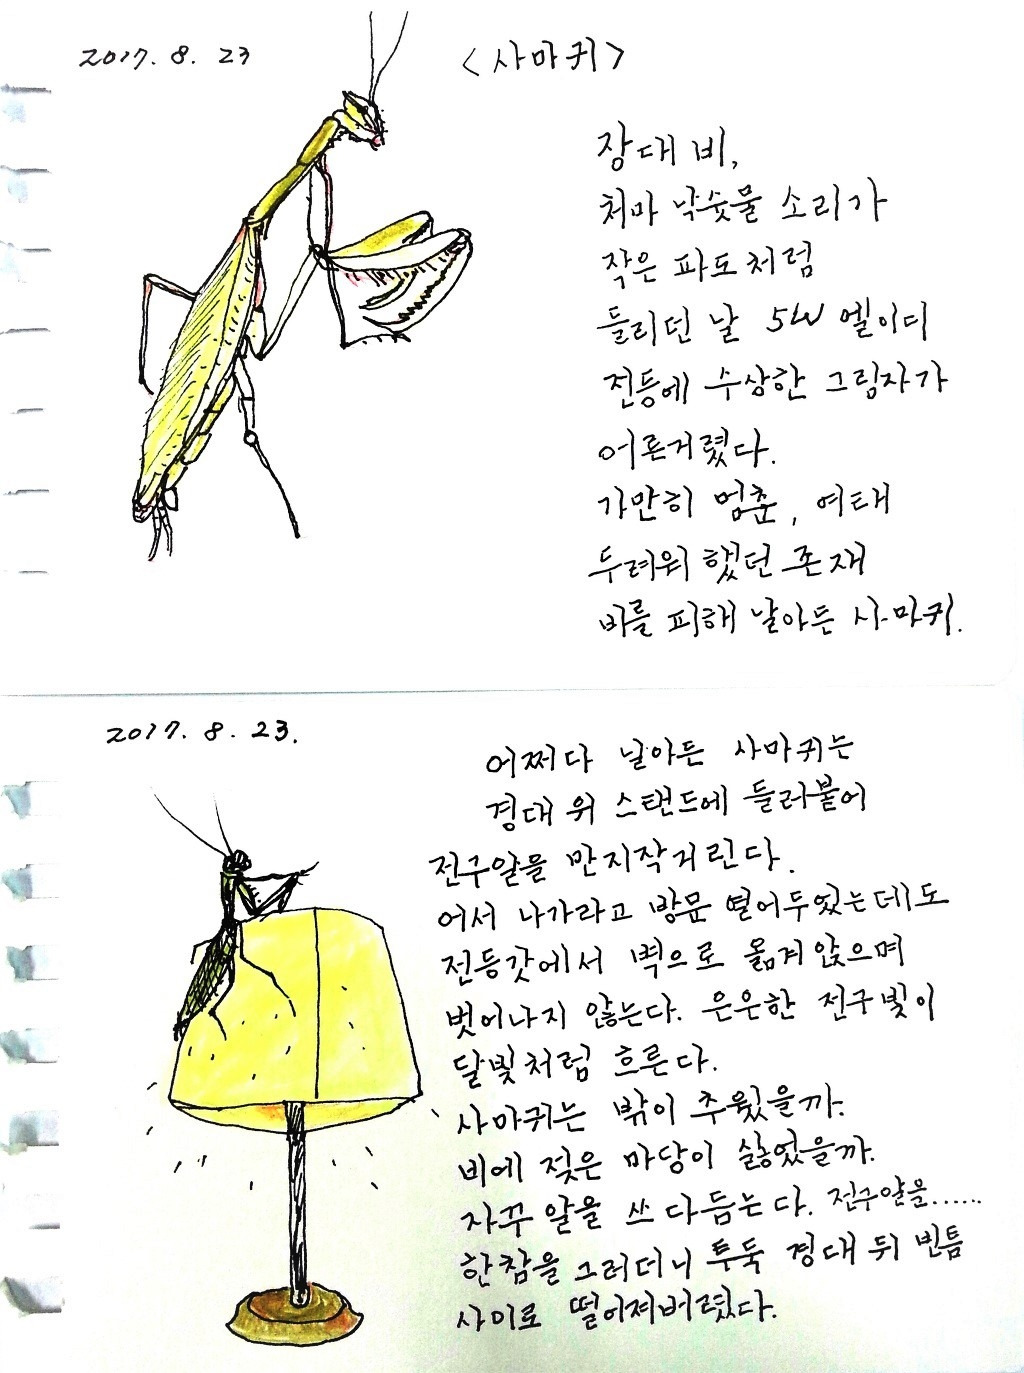 2017. 8. 23
<사마귀>
장대비,
처마 낙숫물 소리가
작은 파도처럼
들리던 날 5W 엘이디
전등에 수상한 그림자가
어른거렸다.
가만히 멈춘, 여태
두려워 했던 존재
비를 피해 날아든 사마귀.
2017. 8. 23.
어쩌다 날아든 사마귀는
경대 위 스탠드에 들러붙어
전구알을 만지작거린다.
어서 나가라고 방문 열어두었는데도
전등갓에서 벽으로 옮겨 앉으며
벗어나지 않는다. 은은한 전구빛이
달빛처럼 흐른다.
사마귀는 밖이 추웠을까.
비에 젖은 마당이 싫었을까.
자꾸 알을 쓰다듬는다. 전구알을......
한참을 그러더니 투둑 경대 뒤 빈틈
사이로 떨어져버렸다.